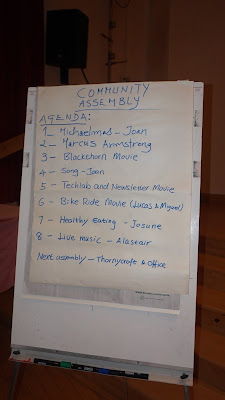 COMMUNITY
ASSEMBLY
AGENDA:
1- Michaelmas - Joan
2- Marcus Armstrong
3- Blackthorn Movie
4- Song - Joan
5- Techlab and Newsletter Movie
6- Bike Ride Movie (Lucas & Miguel)
7- Healthy Eating - Josune
8- Live music - Alastair
Next assembly - Thornycroft & Office